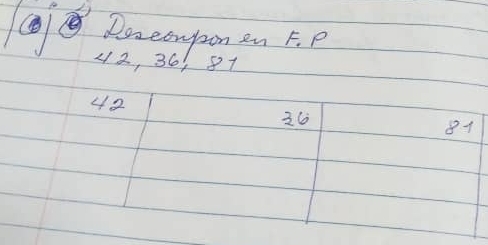 Descompon en F.P
42, 36, 81
42 36 81